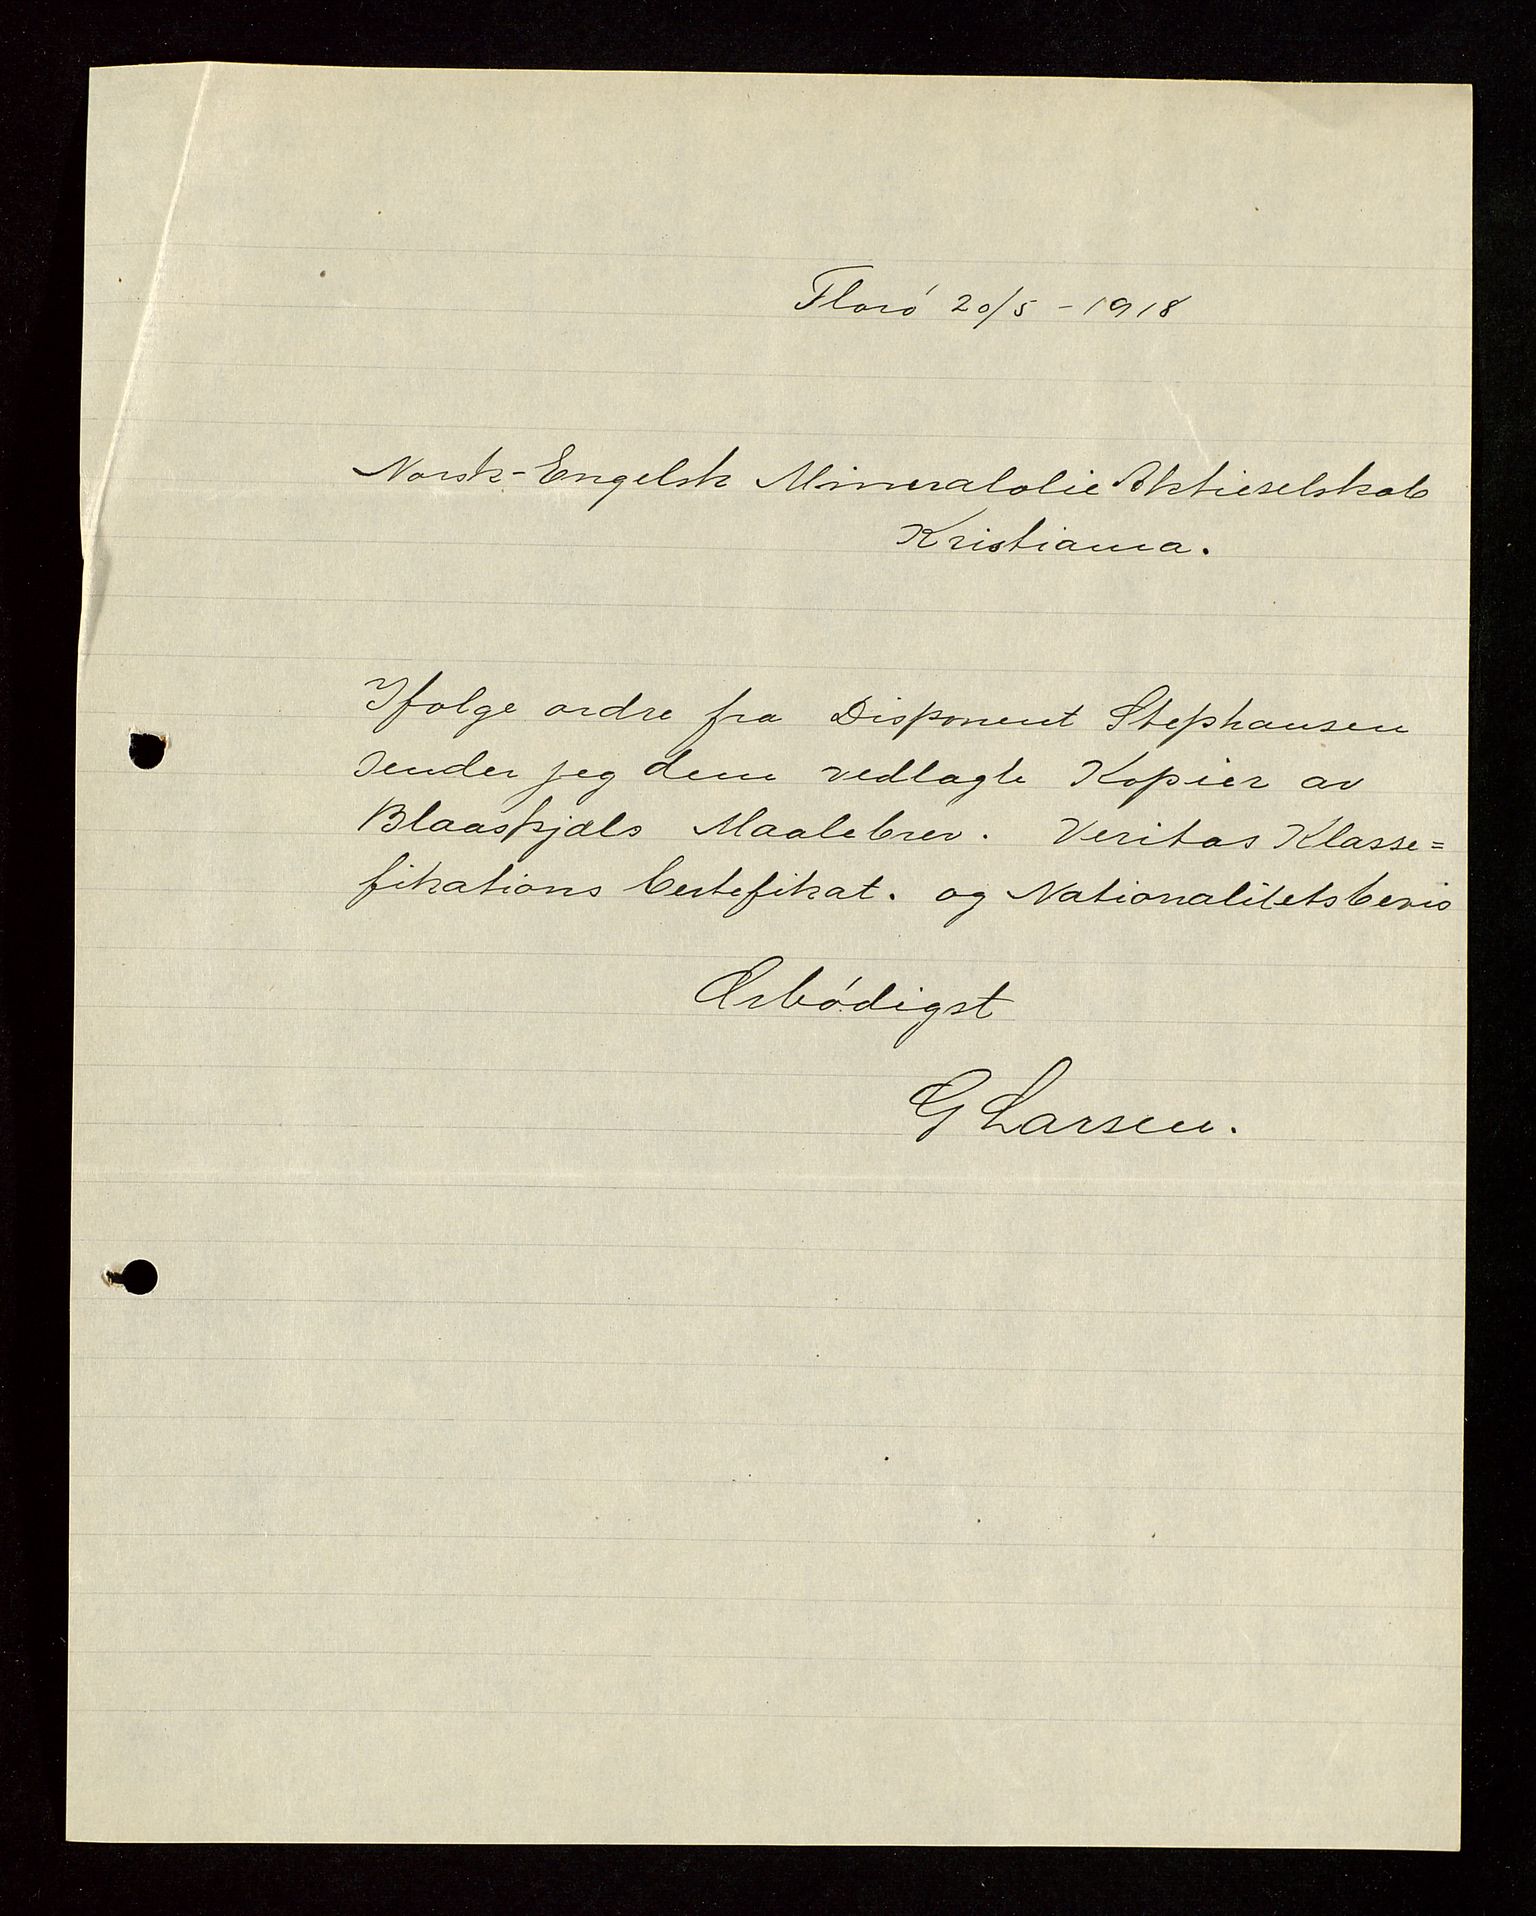 Floró 20/5 - 1918
Norsk-Engelsk Mineralolie Aktieselskab
Kristiania.
Ifolge ordre fra Disponent Stephansen
sender jeg dem vedlagte Kopier av
Blaaskjæls Maalebrev. Veritas Klasse=
fikations Certefikat. og Nationalitetsbevis
Ærbódigst
G Larsen.